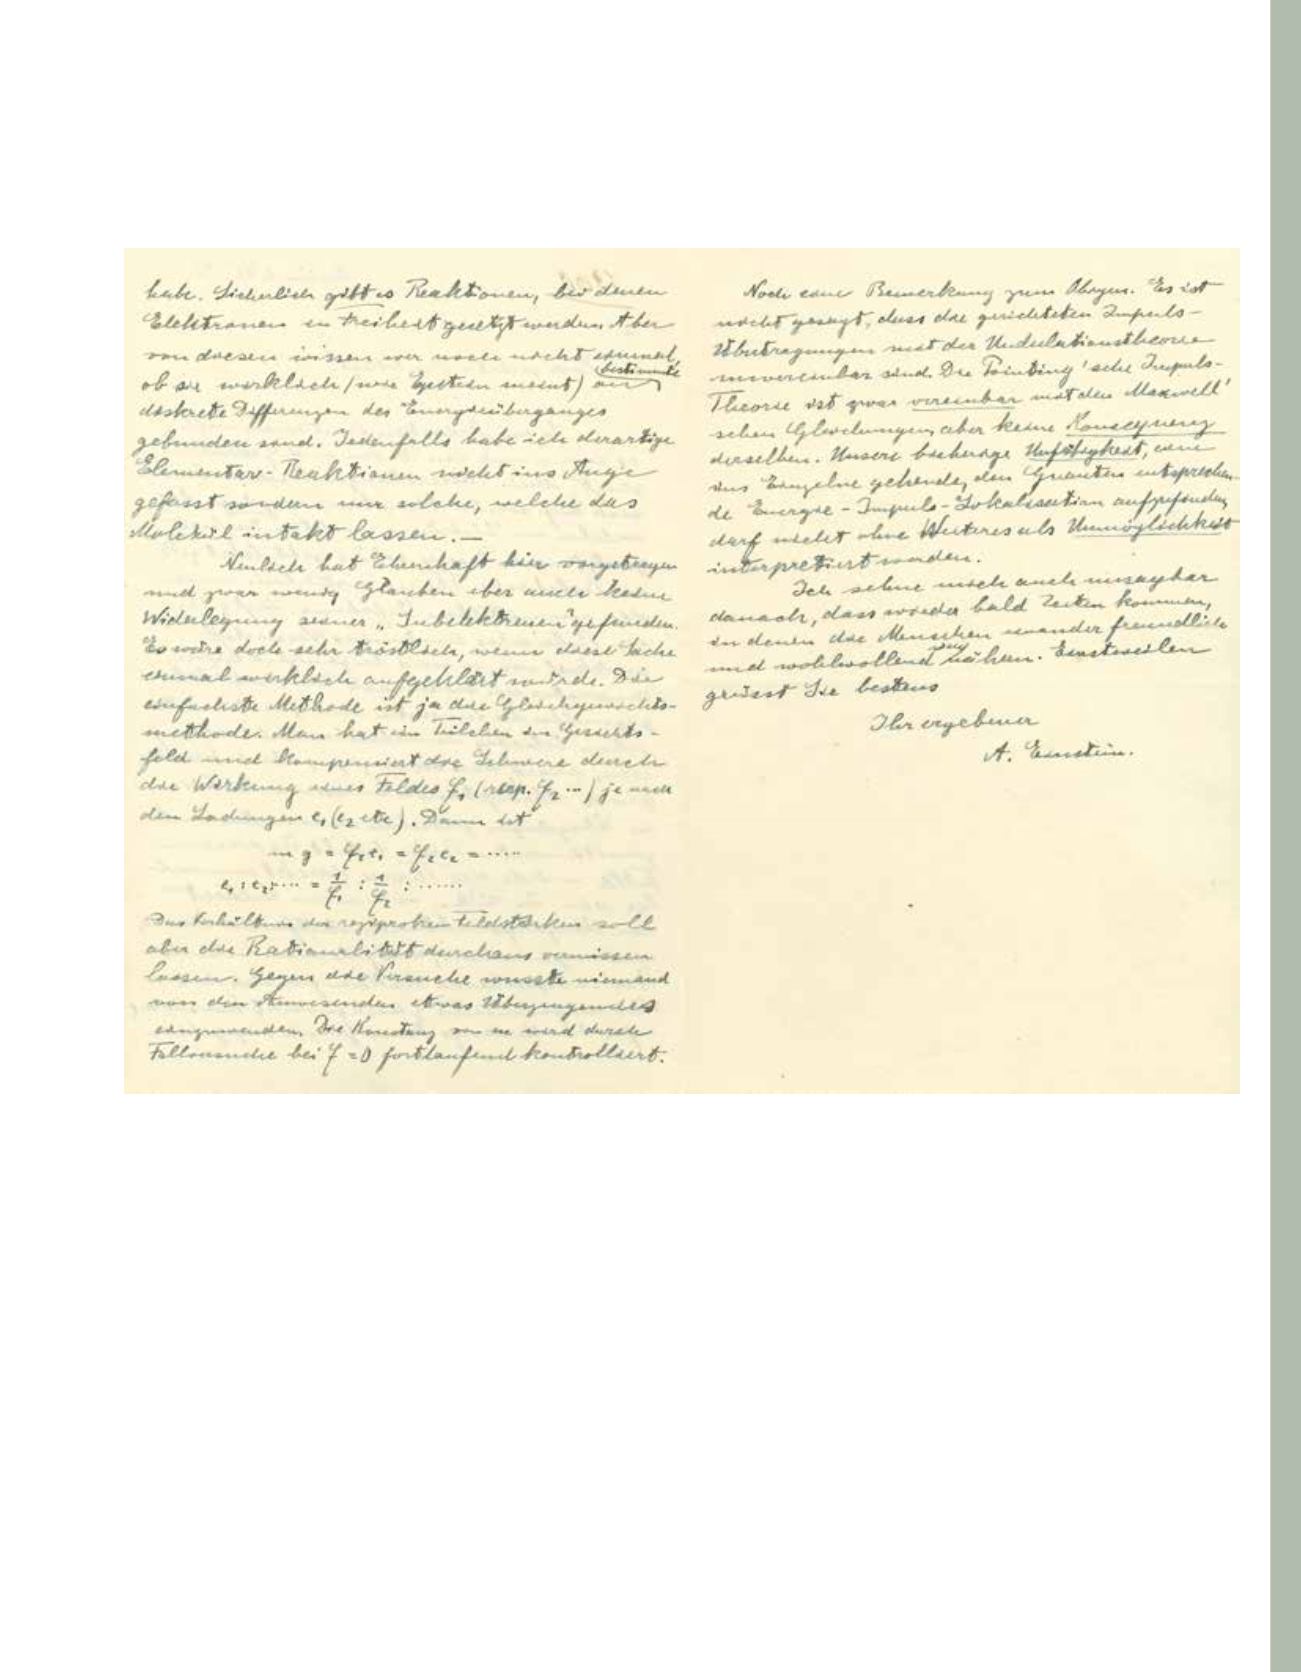 habe. Sicherlich gibt es Reaktionen, bei denen
Elektronen in Freiheit gesetzt werden. Aber
von diesen wissen wir noch nicht einmal,
ob sie wirklich (wie Epstein meint) an bestimmte
diskrete Differenzen des Energieüberganges
gebunden sind. Jedenfalls habe ich derartige
Elementar-Reaktionen nicht ins Auge
gefasst sondern nur solche, welche das
Molekül intakt lassen. —
Neulich hat Ehrenhaft hier vorgetragen
und zwar wenig Glauben aber auch keine
Widerlegung seiner „Subelektronen" gefunden.
Es wäre doch sehr tröstlich, wenn diese Sache
einmal wirklich aufgeklärt würde. Die
einfachste Methode ist ja die Gleichgewichts-
methode. Man hat ein Teilchen im
feld und kompensiert die Schwere durch
die Wirkung eines Feldes f₁ (resp. f₂ ...) je nach
den Ladungen e₁ (e₂ etc). Dann ist
m g = f₁e₁ = f₂e₂ = .....
e₁ : e₂ : .... = 1/f₁ : 1/f₂ : ......
Das Verhältnis der reziproken Feldstärken soll
aber die Rationalität durchaus vermissen
lassen. Gegen die Versuche wusste niemand
von den Anwesenden etwas Überzeugendes
einzuwenden. Die Konstanz von m wird durch
Fallversuche bei f = 0 fortlaufend kontrolliert.
Noch eine Bemerkung zum Obigen. Es ist
nicht gesagt, dass die gerichteten Impuls-
Übertragungen mit der Undulationstheorie
unvereinbar sind. Die Pointing'sche Impuls-
Theorie ist zwar vereinbar mit den Maxwell'
schen Gleichungen, aber keine Konsequenz
derselben. Unsere bisherige Unfähigkeit, eine
ins Einzelne gehende, den Quanten entsprechen-
de Energie-Impuls-Lokalisation aufzufinden,
darf nicht ohne Weiteres als Unmöglichkeit
interpretiert werden.
Ich sehne mich auch unsagbar
danach, dass wieder bald Zeiten kommen,
in denen die Menschen einander freundlich
und wohlwollend sich nähern. Einstweilen
grüsst Sie bestens
Ihr ergebener
A. Einstein.